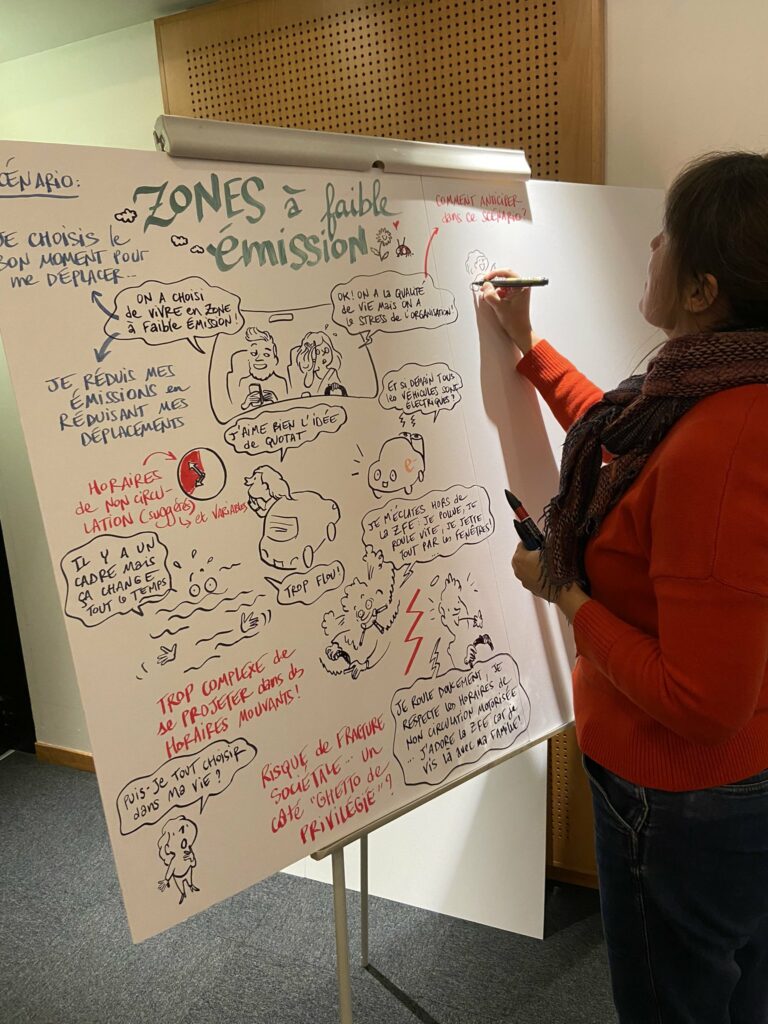 SCÉNARIO:
ZONES à faible
émission
COMMENT ANTICIPER
dans ce SCÉNARIO?
JE CHOISIS le
BON MOMENT POUR
me DÉPLACER...
ON A CHOISI
de VIVRE en ZONE
à FAIBLE ÉMISSION!
OK! ON A LA QUALITÉ
de VIE MAIS ON A
le STRESS de L'ORGANISATION!
JE RÉDUIS MES
ÉMISSIONS en
RÉDUISANT MES
DÉPLACEMENTS
J'AIME BIEN L'IDÉE
de QUOTAT
ET SI DEMAIN TOUS
les VÉHICULES SONT
ÉLECTRIQUES?
e-
HORAIRES
de NON CIRCU-
LATION (suggérés)
et VARIABLES
IL Y A UN
CADRE MAIS
ÇA CHANGE
TOUT le TEMPS
TROP FLOU!
JE M'ÉCLATES HORS de
la ZFE: JE POLLUE, JE
ROULE VITE, JE JETTE
TOUT PAR les FENÊTRES!
TROP COMPLEXE de
se PROJETER dans des
HORAIRES MOUVANTS!
JE ROULE DOUCEMENT, JE
RESPECTE les HORAIRES de
NON CIRCULATION MOTORISÉE
... J'ADORE la ZFE CAR JE
VIS LÀ AVEC MA FAMILLE!
PUIS-JE TOUT CHOISIR
dans MA VIE?
RISQUE de FRACTURE
SOCIÉTALE... UN
CÔTÉ "GHETTO de
PRIVILÉGIÉ"?